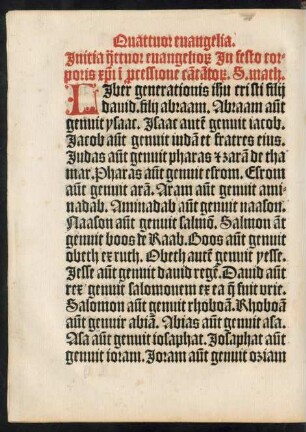 Quattuor euangelia.
Initia q̄ttuor euangelioꝝ In festo cor
poris xp̄i ī ꝓcessione cātādoꝝ. S. math.
LIber generationis ihu cristi filij
dauid. filij abraam. Abraam aūt
genuit ysaac. Isaac autē genuit iacob.
Jacob aūt genuit iudā et fratres eius.
Judas aūt genuit phares ⁊ zarā de tha
mar. Phares aūt genuit esrom. Esrom
aūt genuit arā. Aram aūt genuit ami-
nadab. Aminadab aūt genuit naason.
Naason aūt genuit salmō. Salmon āt
genuit boos de Raab. Boos aūt genuit
obeth ex ruth. Obeth autē genuit yesse.
Jesse aūt genuit dauid regē. Dauid aūt
rex genuit salomonem ex ea q̄ fuit vrie.
Salomon aūt genuit rhoboā. Rhoboā
aūt genuit abiā. Abias aūt genuit asa.
Asa aūt genuit iosaphat. Josaphat aūt
genuit ioram. Joram aūt genuit oziam